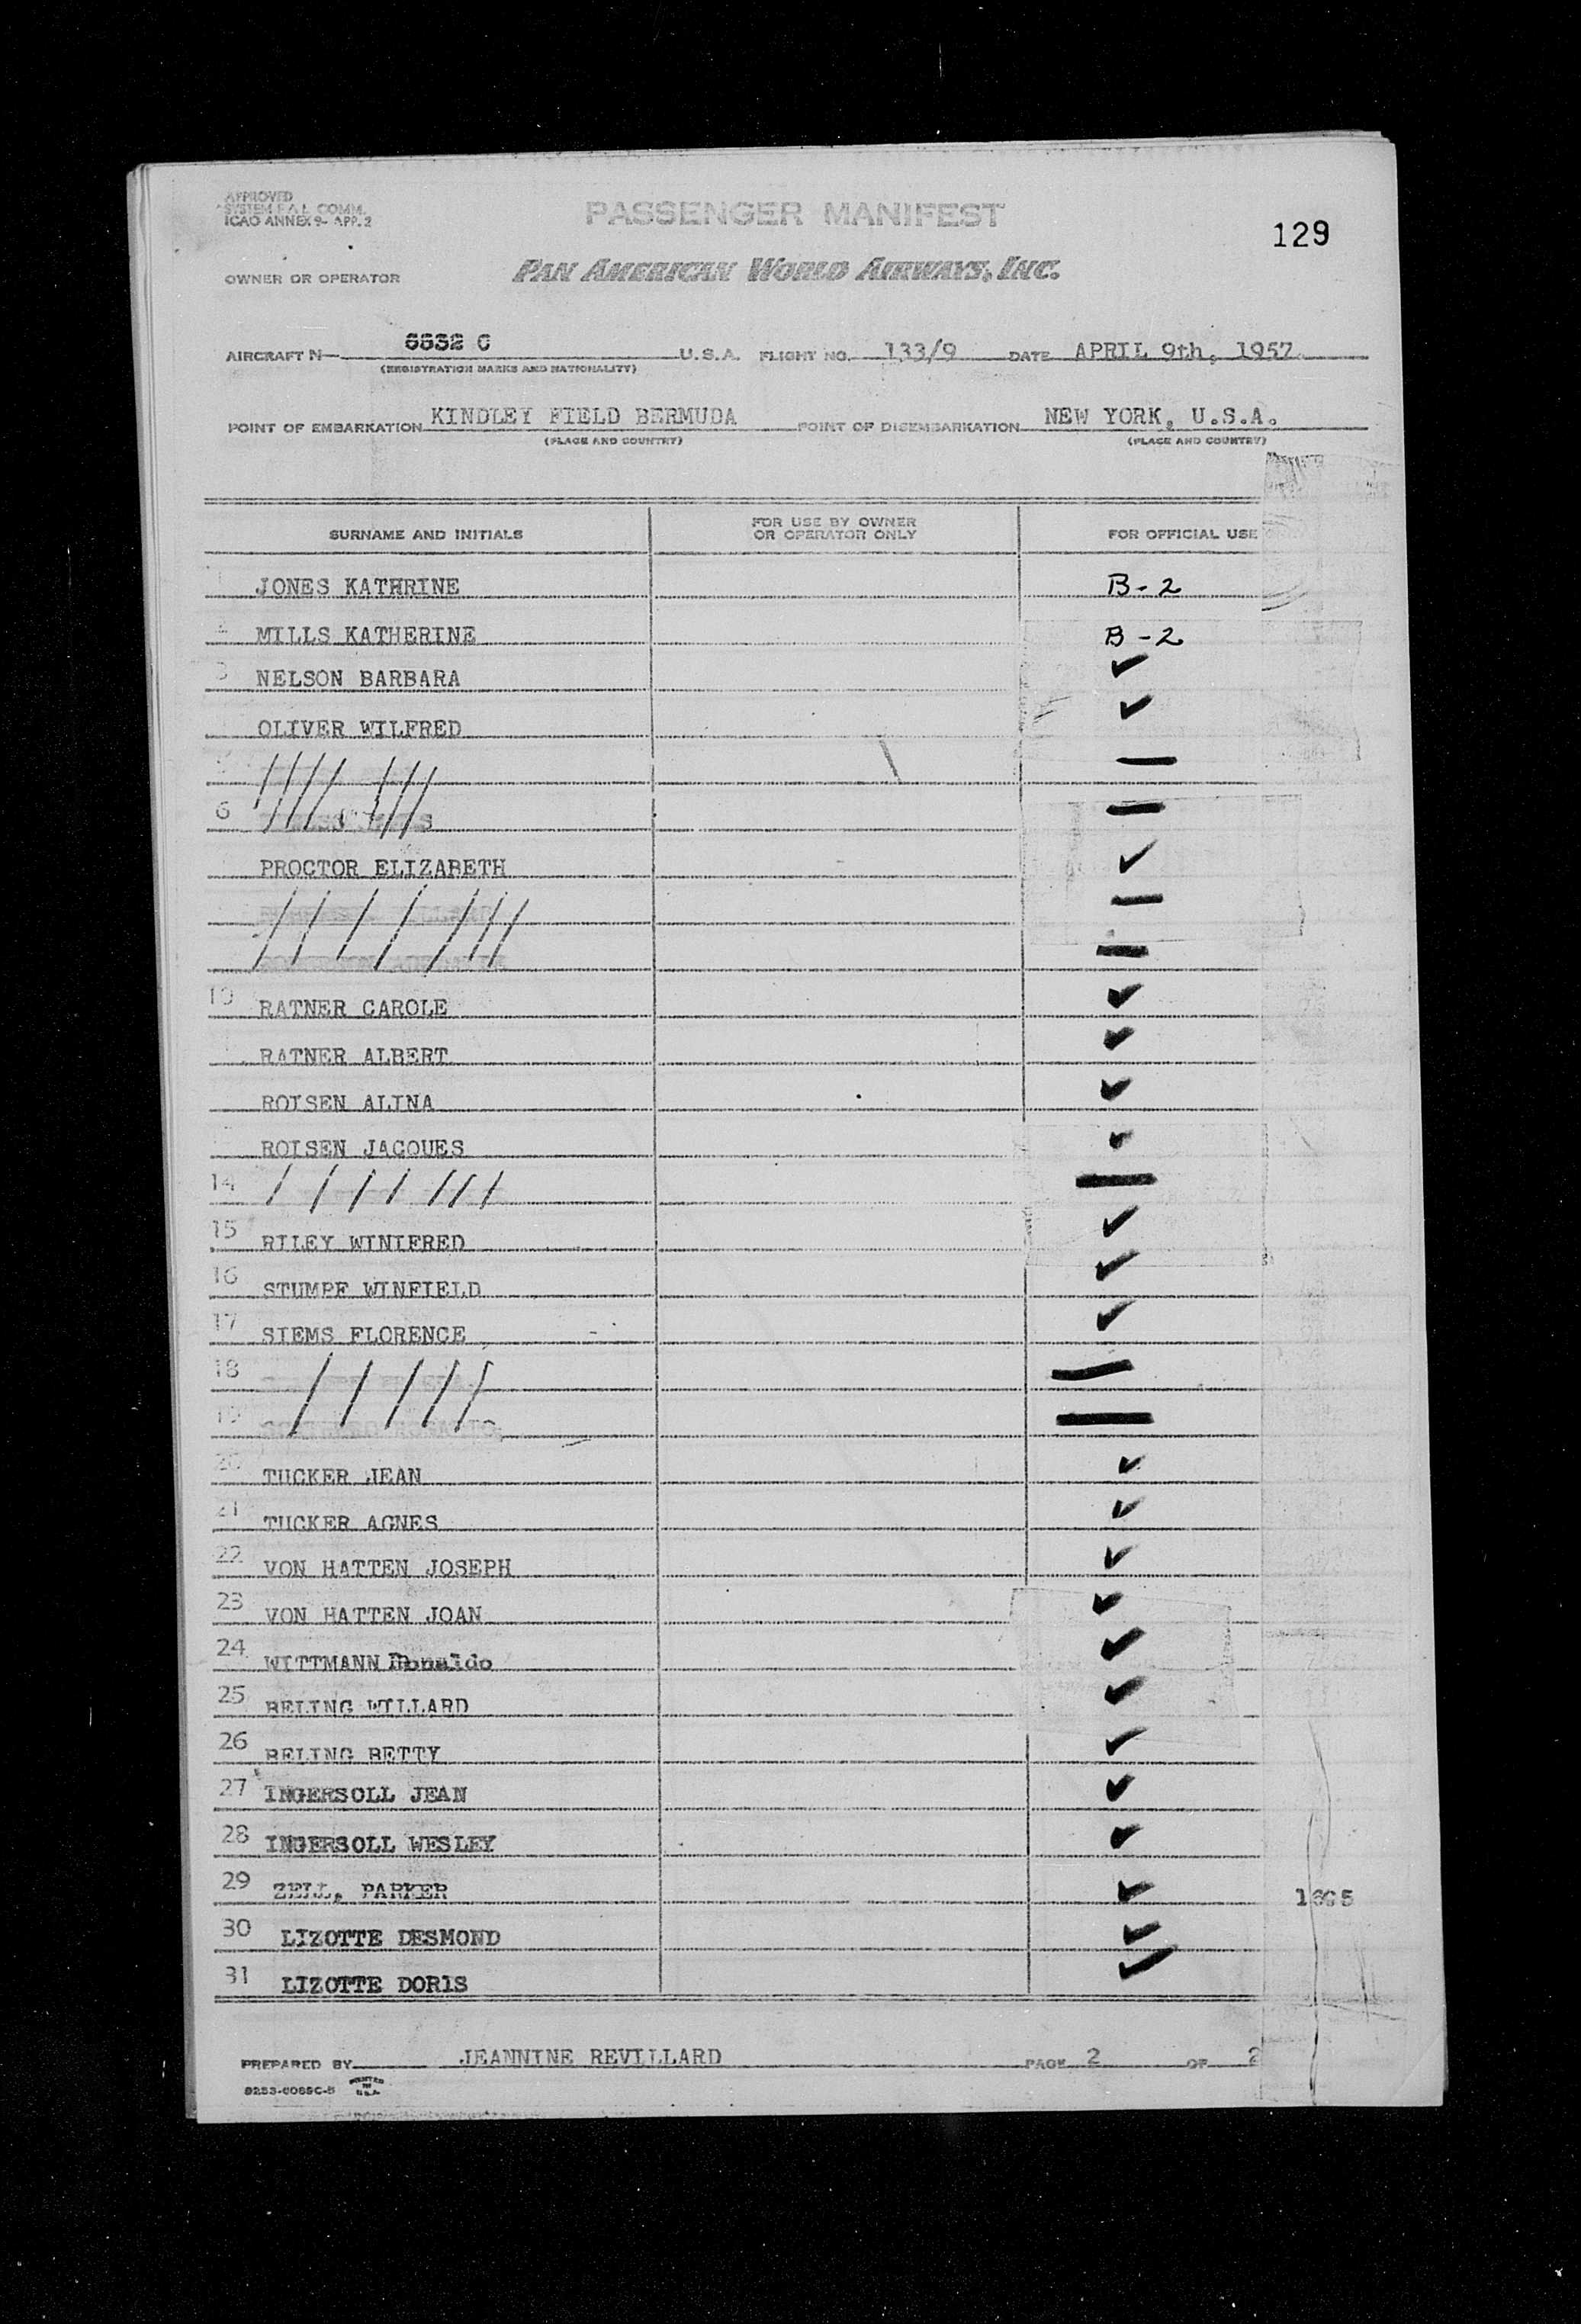 APPROVED
SYSTEM F.A.L. COMM.
ICAO ANNEX 9- APP. 2
PASSENGER MANIFEST
129
OWNER OR OPERATOR
PAN AMERICAN WORLD AIRWAYS, INC.
AIRCRAFT N- 6532 C U.S.A. FLIGHT NO. 133/9 DATE APRIL 9th, 1957.
(REGISTRATION MARKS AND NATIONALITY)
POINT OF EMBARKATION KINDLEY FIELD BERMUDA POINT OF DISEMBARKATION NEW YORK, U.S.A.
(PLACE AND COUNTRY) (PLACE AND COUNTRY)
SURNAME AND INITIALS FOR USE BY OWNER OR OPERATOR ONLY FOR OFFICIAL USE
JONES KATHRINE B-2
MILLS KATHERINE B-2
3 NELSON BARBARA ✓
OLIVER WILFRED ✓
6
PROCTOR ELIZABETH ✓
10 RATNER CAROLE ✓
RATNER ALBERT ✓
ROISEN ALINA ✓
ROISEN JACQUES ✓
14
15 RILEY WINIFRED ✓
16 STUMPF WINFIELD ✓
17 SIEMS FLORENCE ✓
18
19
20 TUCKER JEAN ✓
21 TUCKER AGNES ✓
22 VON HATTEN JOSEPH ✓
23 VON HATTEN JOAN ✓
24 WITTMANN Ronaldo ✓
25 BELING WILLARD ✓
26 BELING BETTY ✓
27 INGERSOLL JEAN ✓
28 INGERSOLL WESLEY ✓
29 ZELL, PARKER ✓
30 LIZOTTE DESMOND ✓
31 LIZOTTE DORIS ✓
PREPARED BY JEANNINE REVILLARD PAGE 2 OF 2
PRINTED IN U.S.A.